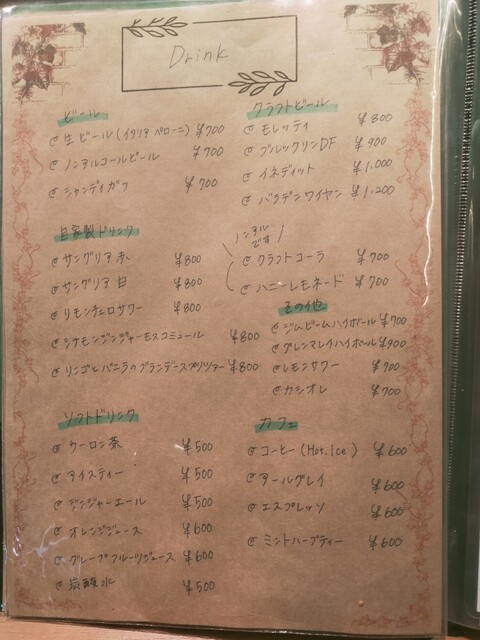 Drink
ビール
生ビール(イタリア ペローニ) ¥700
ノンアルコールビール ¥700
シャンディガフ ¥700
クラフトビール
モレッティ ¥800
ブルックリンDF ¥900
イネディット ¥1.000
バラデンワイヤン ¥1.200
自家製ドリンク
サングリア 赤 ¥800
サングリア 白 ¥800
リモンチェロサワー ¥800
シナモンジンジャーモスコミュール ¥800
リンゴとバニラのブランデースプリッツァー ¥800
\ ノンアルです /
クラフトコーラ ¥700
ハニーレモネード ¥700
その他
ジムビームハイボール ¥700
グレンマレイハイボール ¥900
レモンサワー ¥700
カシオレ ¥700
ソフトドリンク
ウーロン茶 ¥500
アイスティー ¥500
ジンジャーエール ¥500
オレンジジュース ¥600
グレープフルーツジュース ¥600
炭酸水 ¥500
カフェ
コーヒー(Hot.Ice) ¥600
アールグレイ ¥600
エスプレッソ ¥600
ミントハーブティー ¥600